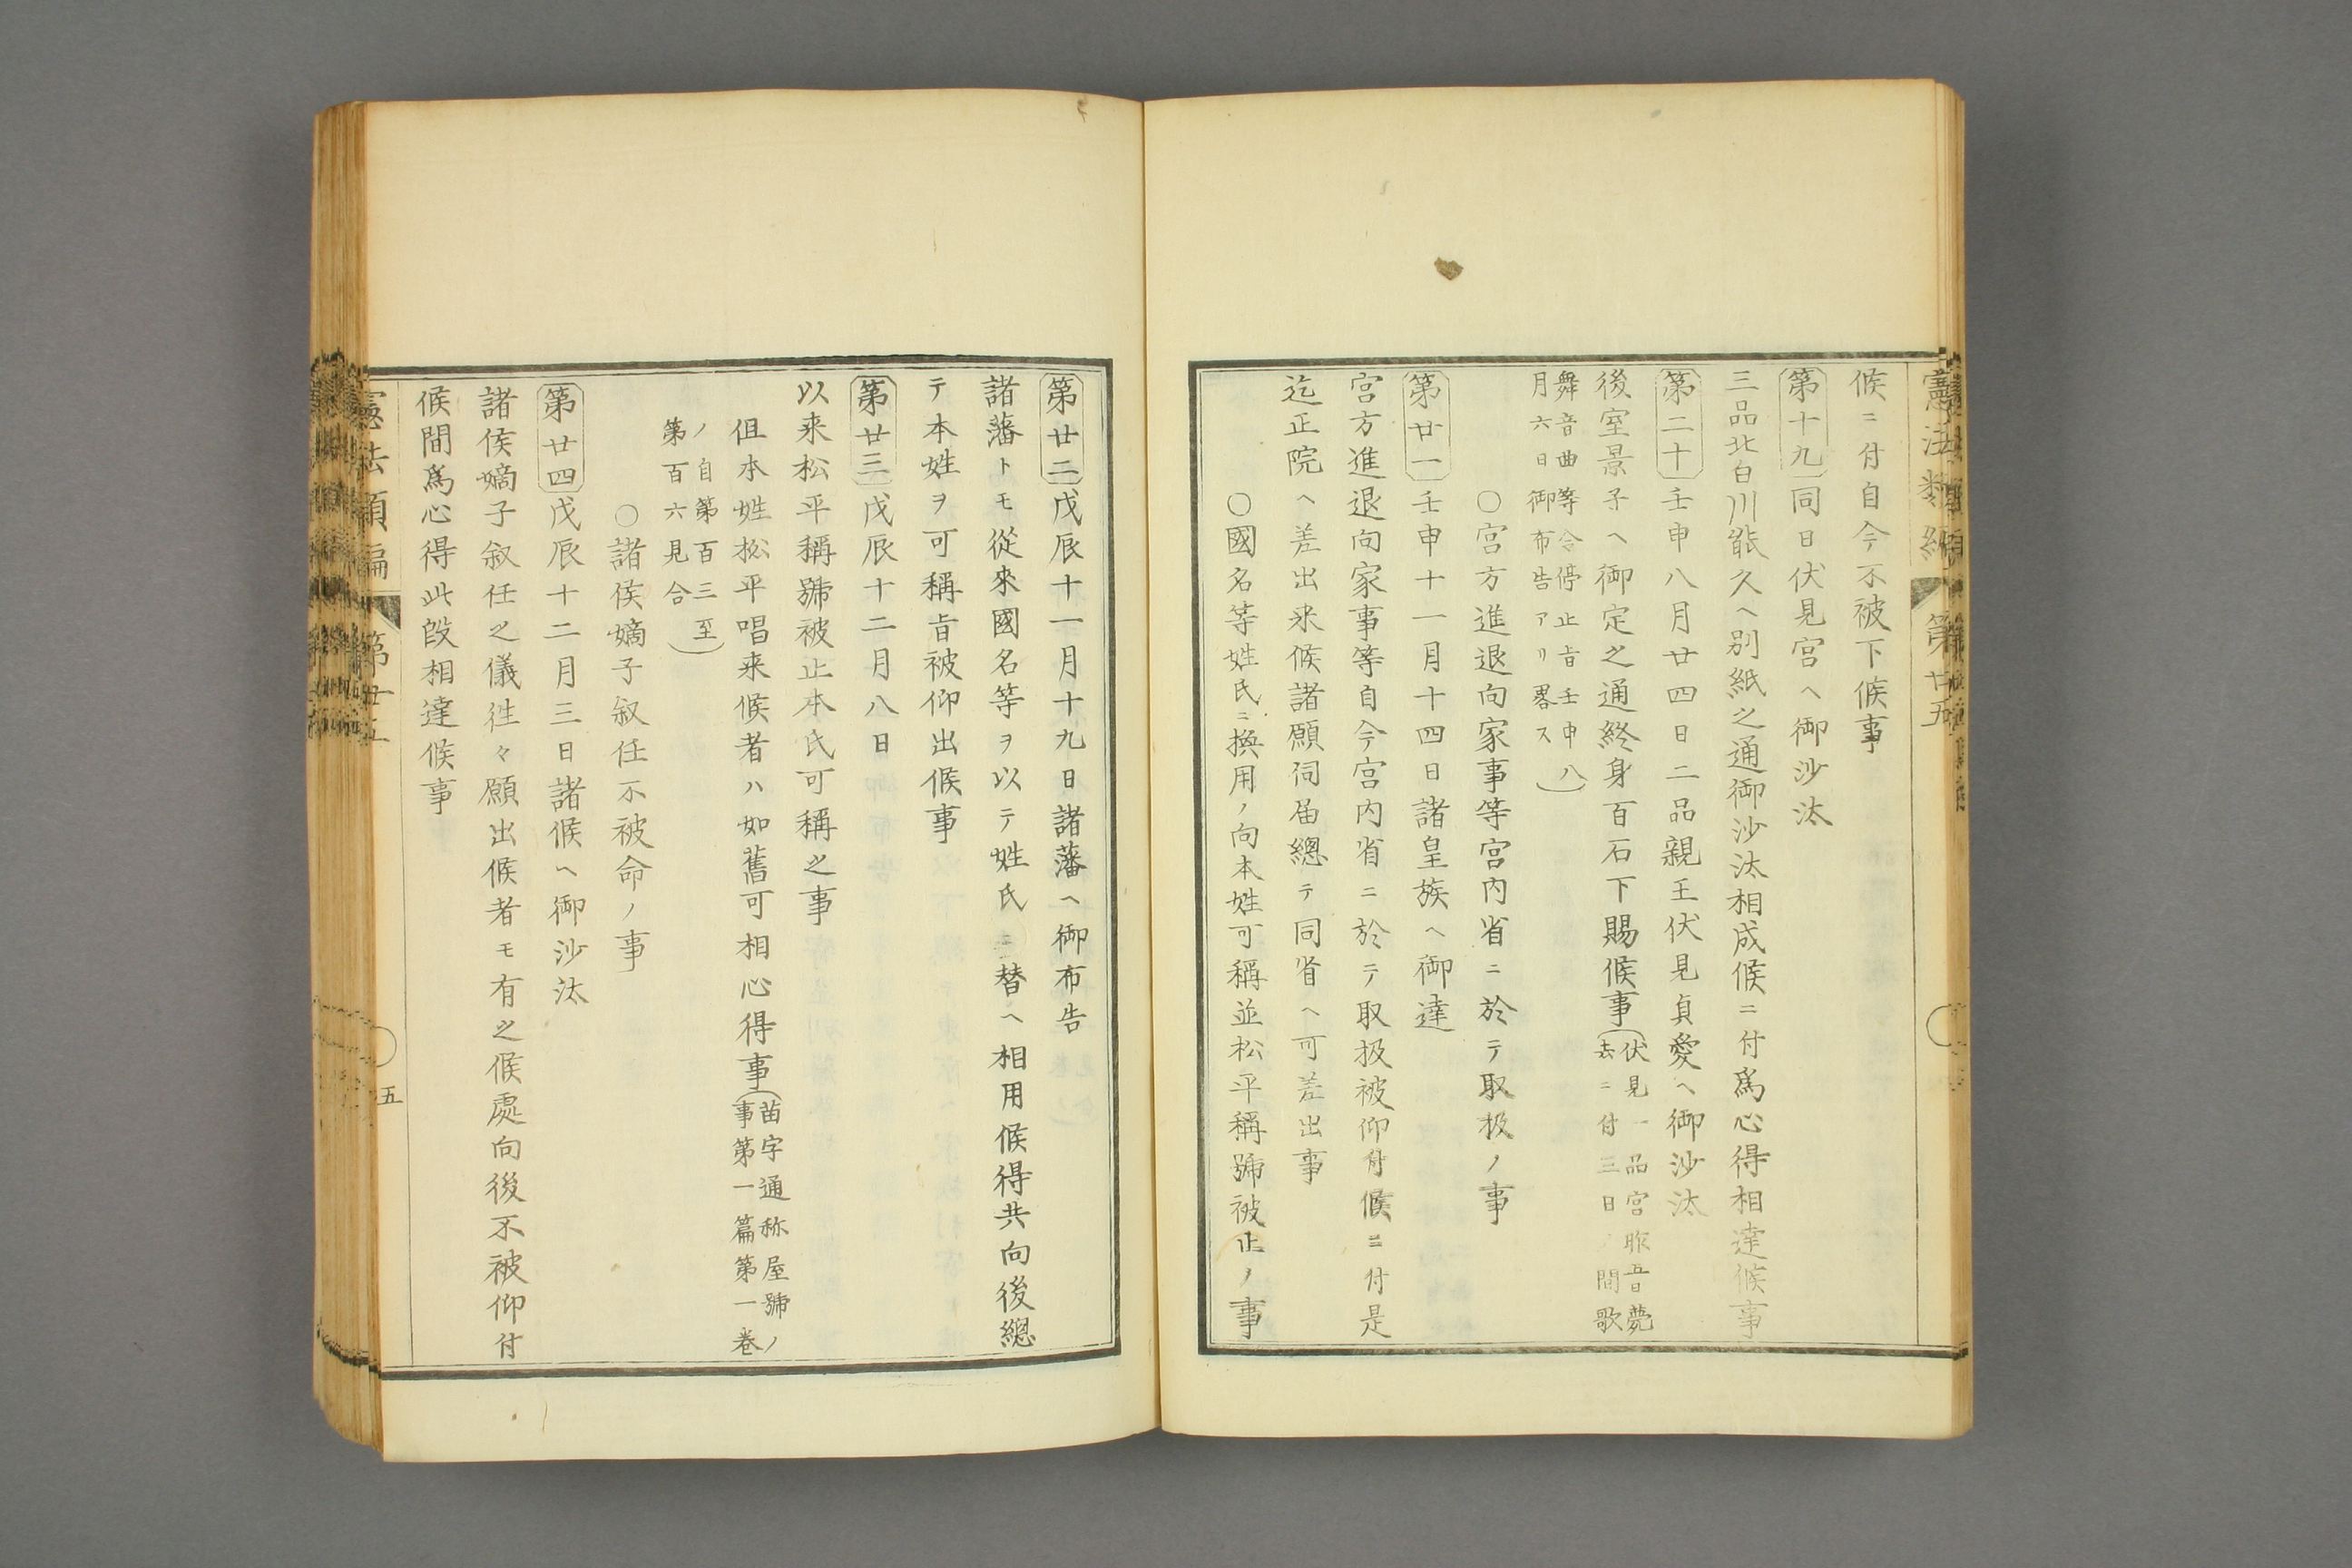 候ニ付自今不被下候事
第十九同日伏見宮ヘ御沙汰
三品北白川能久ヘ別紙之通御沙汰相成候ニ付爲心得相達候事
第二十壬申八月廿四日二品親王伏見貞愛ヘ御沙汰
後室景子ヘ御定之通終身百石下賜候事(伏見一品宮昨五日薨
去ニ付三日ノ間歌
舞音曲等令停止旨壬申八
月六日御布告アリ畧ス)
○宮方進退向家事等宮内省ニ於テ取扱ノ事
第廿一壬申十一月十四日諸皇族ヘ御達
宮方進退向家事等自今宮内省ニ於テ取扱被仰付候ニ付是
迄正院ヘ差出来候諸願伺届總テ同省ヘ可差出事
○國名等姓氏ニ換用ノ向本姓可稱並松平稱號被止ノ事
第廿二戊辰十一月十九日諸藩ヘ御布告
諸藩トモ從來國名等ヲ以テ姓氏ニ替ヘ相用候得共向後總
テ本姓ヲ可稱旨被仰出候事
第廿三戊辰十二月八日
以来松平稱號被止本氏可稱之事
但本姓松平唱来候者ハ如舊可相心得事(苗字通称屋號ノ
事第一篇第一巻
ノ自第百三至
第百六見合)
○諸侯嫡子叙任不被命ノ事
第廿四戊辰十二月三日諸候ヘ御沙汰
諸侯嫡子叙任之儀徃々願出候者モ有之候處向後不被仰付
候間爲心得此段相達候事
五